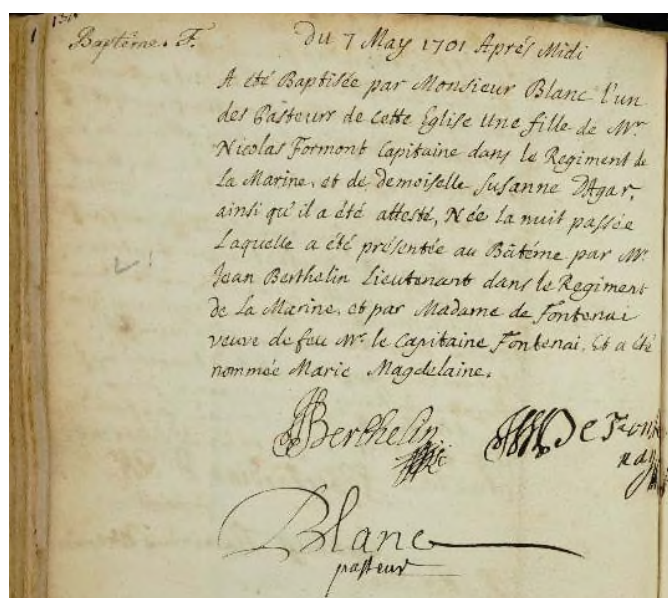 Baptême. F.
Du 7 May 1701 Aprés Midi
A été Baptisée par Monsieur Blanc l'un
des Pasteurs de cette Eglise Une fille de Mr.
Nicolas Formont Capitaine dans le Regiment de
La Marine, et de demoiselle Susanne D'Agar,
ainsi qu'il a été attesté, Née la nuit passée
Laquelle a été présentée au Bâtéme par Mr.
Jean Berthelin Lieutenant dans le Regiment
de La Marine, et par Madame de Fontenai
veuve de feu Mr. le Capitaine Fontenai. Et a été
nommée Marie Magdelaine.
Berthelin
De
Blanc
pasteur